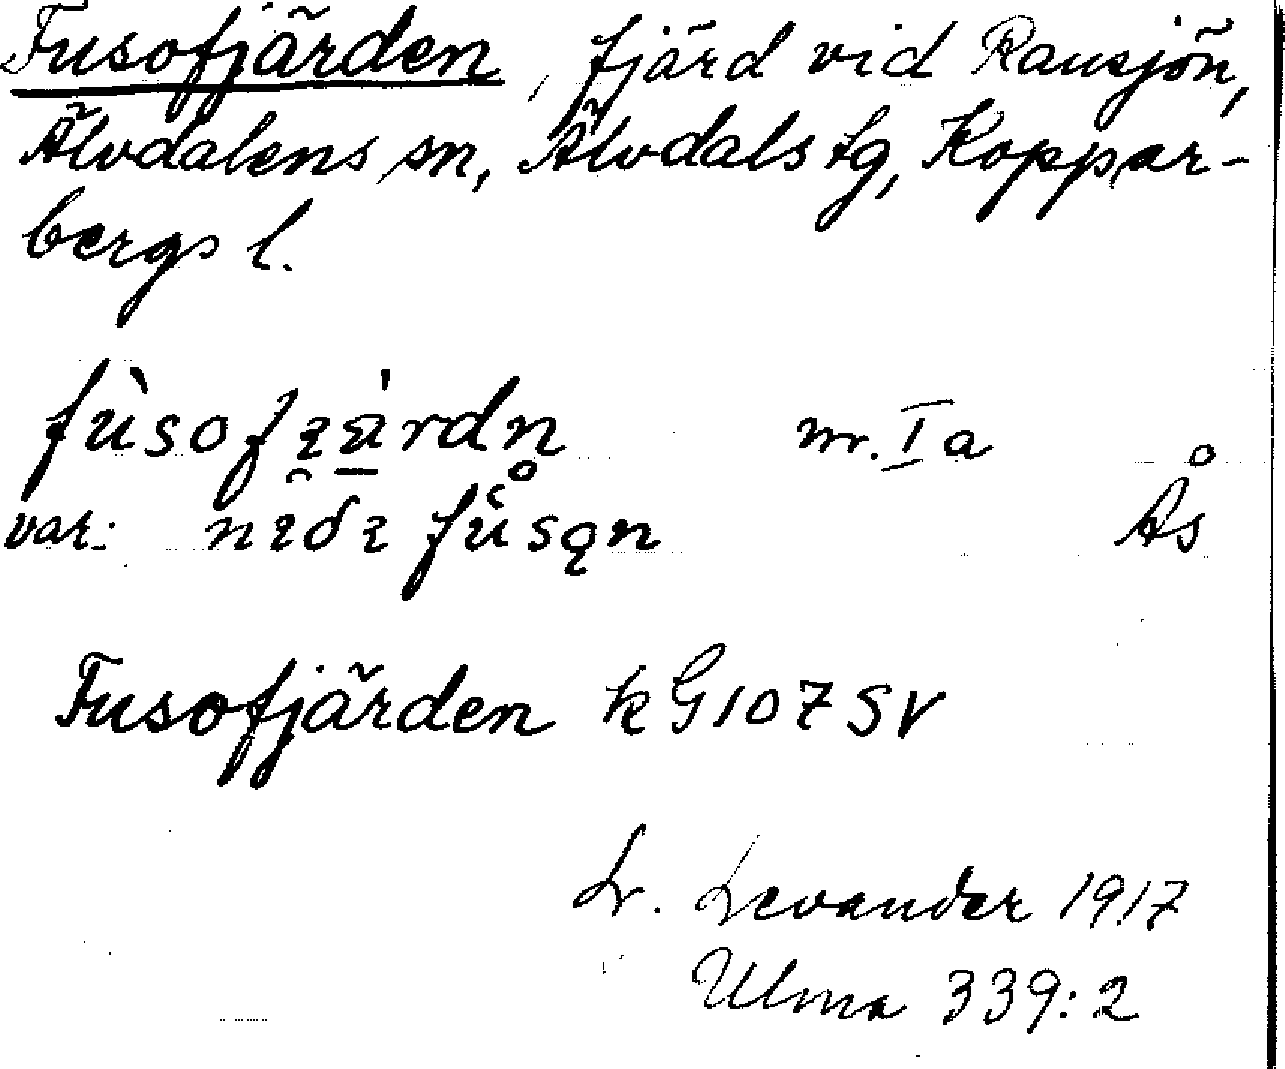 Fusofjärden, fjärd vid Ransjön,
Älvdalens sn, Älvdals tg, Koppar-
bergs l.
fùsofɿa̱rdn̥ nr. I a
var: nɿðɿ fùsǫn Ås
Fusofjärden kG 107 SV
L. Levander 1917
Ulma 339:2